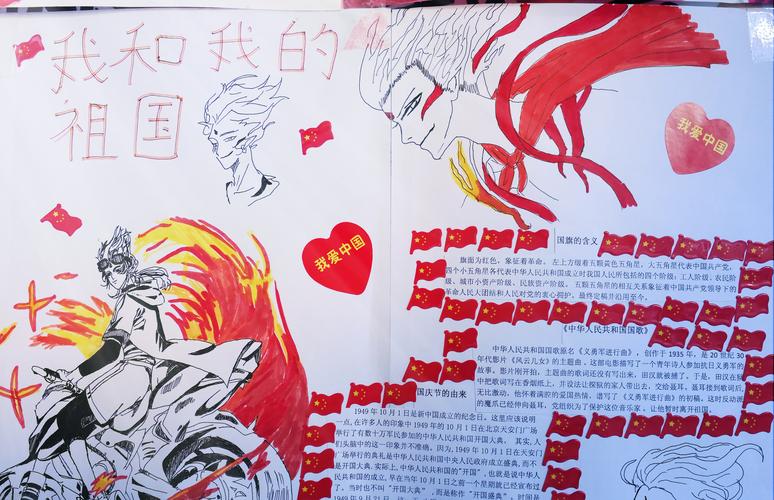 我和我的
祖国
我爱中国
我爱中国
国旗的含义
旗面为红色，象征着革命。左上方缀着五颗黄色五角星，大五角星代表中国共产党，
四个小五角星各代表中华人民共和国成立时我国人民所包括的四个阶级：工人阶级、农民阶
级、城市小资产阶级、民族资产阶级。五颗五角星的相互关系象征着中国共产党领导下的
革命人民大团结和人民对党的衷心拥护。最终定稿并沿用至今。
《中华人民共和国国歌》
中华人民共和国国歌原名《义勇军进行曲》，创作于 1935 年，是 20 世纪 30
年代影片《风云儿女》的主题曲。这部电影描写了一个青年诗人参加抗日义勇军的
故事。影片刚开拍，主题曲的歌词还没有写出来，田汉就被捕了。于是，田汉在狱
中把歌词写在香烟纸上，并设法让探狱的家人带出去，交给聂耳。聂耳接到歌词后，
无比激动，他怀着满腔的爱国热情，谱写了《义勇军进行曲》的初稿。这时反动派
的魔爪已经伸向聂耳，党组织为了保护这位音乐家，让他暂时离开祖国。
国庆节的由来
1949 年 10 月 1 日是新中国成立的纪念日。这里应该说明
一点，在许多人的印象中 1949 年的 10 月 1 日在北京天安门广场
举行了有数十万军民参加的中华人民共和国开国大典。其实，人
们头脑中的这一印象并不准确。因为，1949 年 10 月 1 日在天安门
广场举行的典礼是中华人民共和国中央人民政府成立盛典，而不
是开国大典。实际上，中华人民共和国的"开国"，也就是说中华人
民共和国的成立，早在当年 10 月 1 日之前一个星期就已经宣布过
了。当时也不叫"开国大典"，而是称作"开国盛典"。时间是
1949 年 9 月 21 日